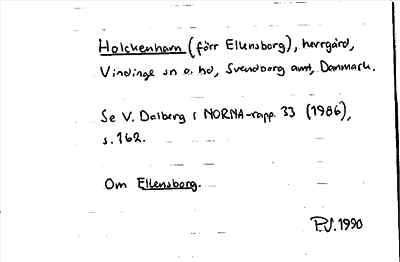 Holckenhavn (förr Ellensborg), herrgård,
Vindinge sn o. hd, Svendborg amt, Danmark.
Se V. Dalberg i NORNA-rapp. 33 (1986),
s. 162.
Om Ellensborg.
P.S. 1990